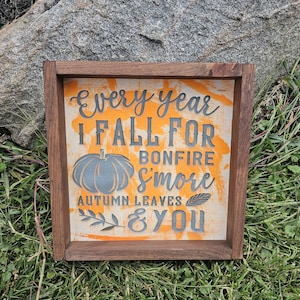 Every year
I FALL FOR
BONFIRE
S'more
AUTUMN LEAVES
& YOU